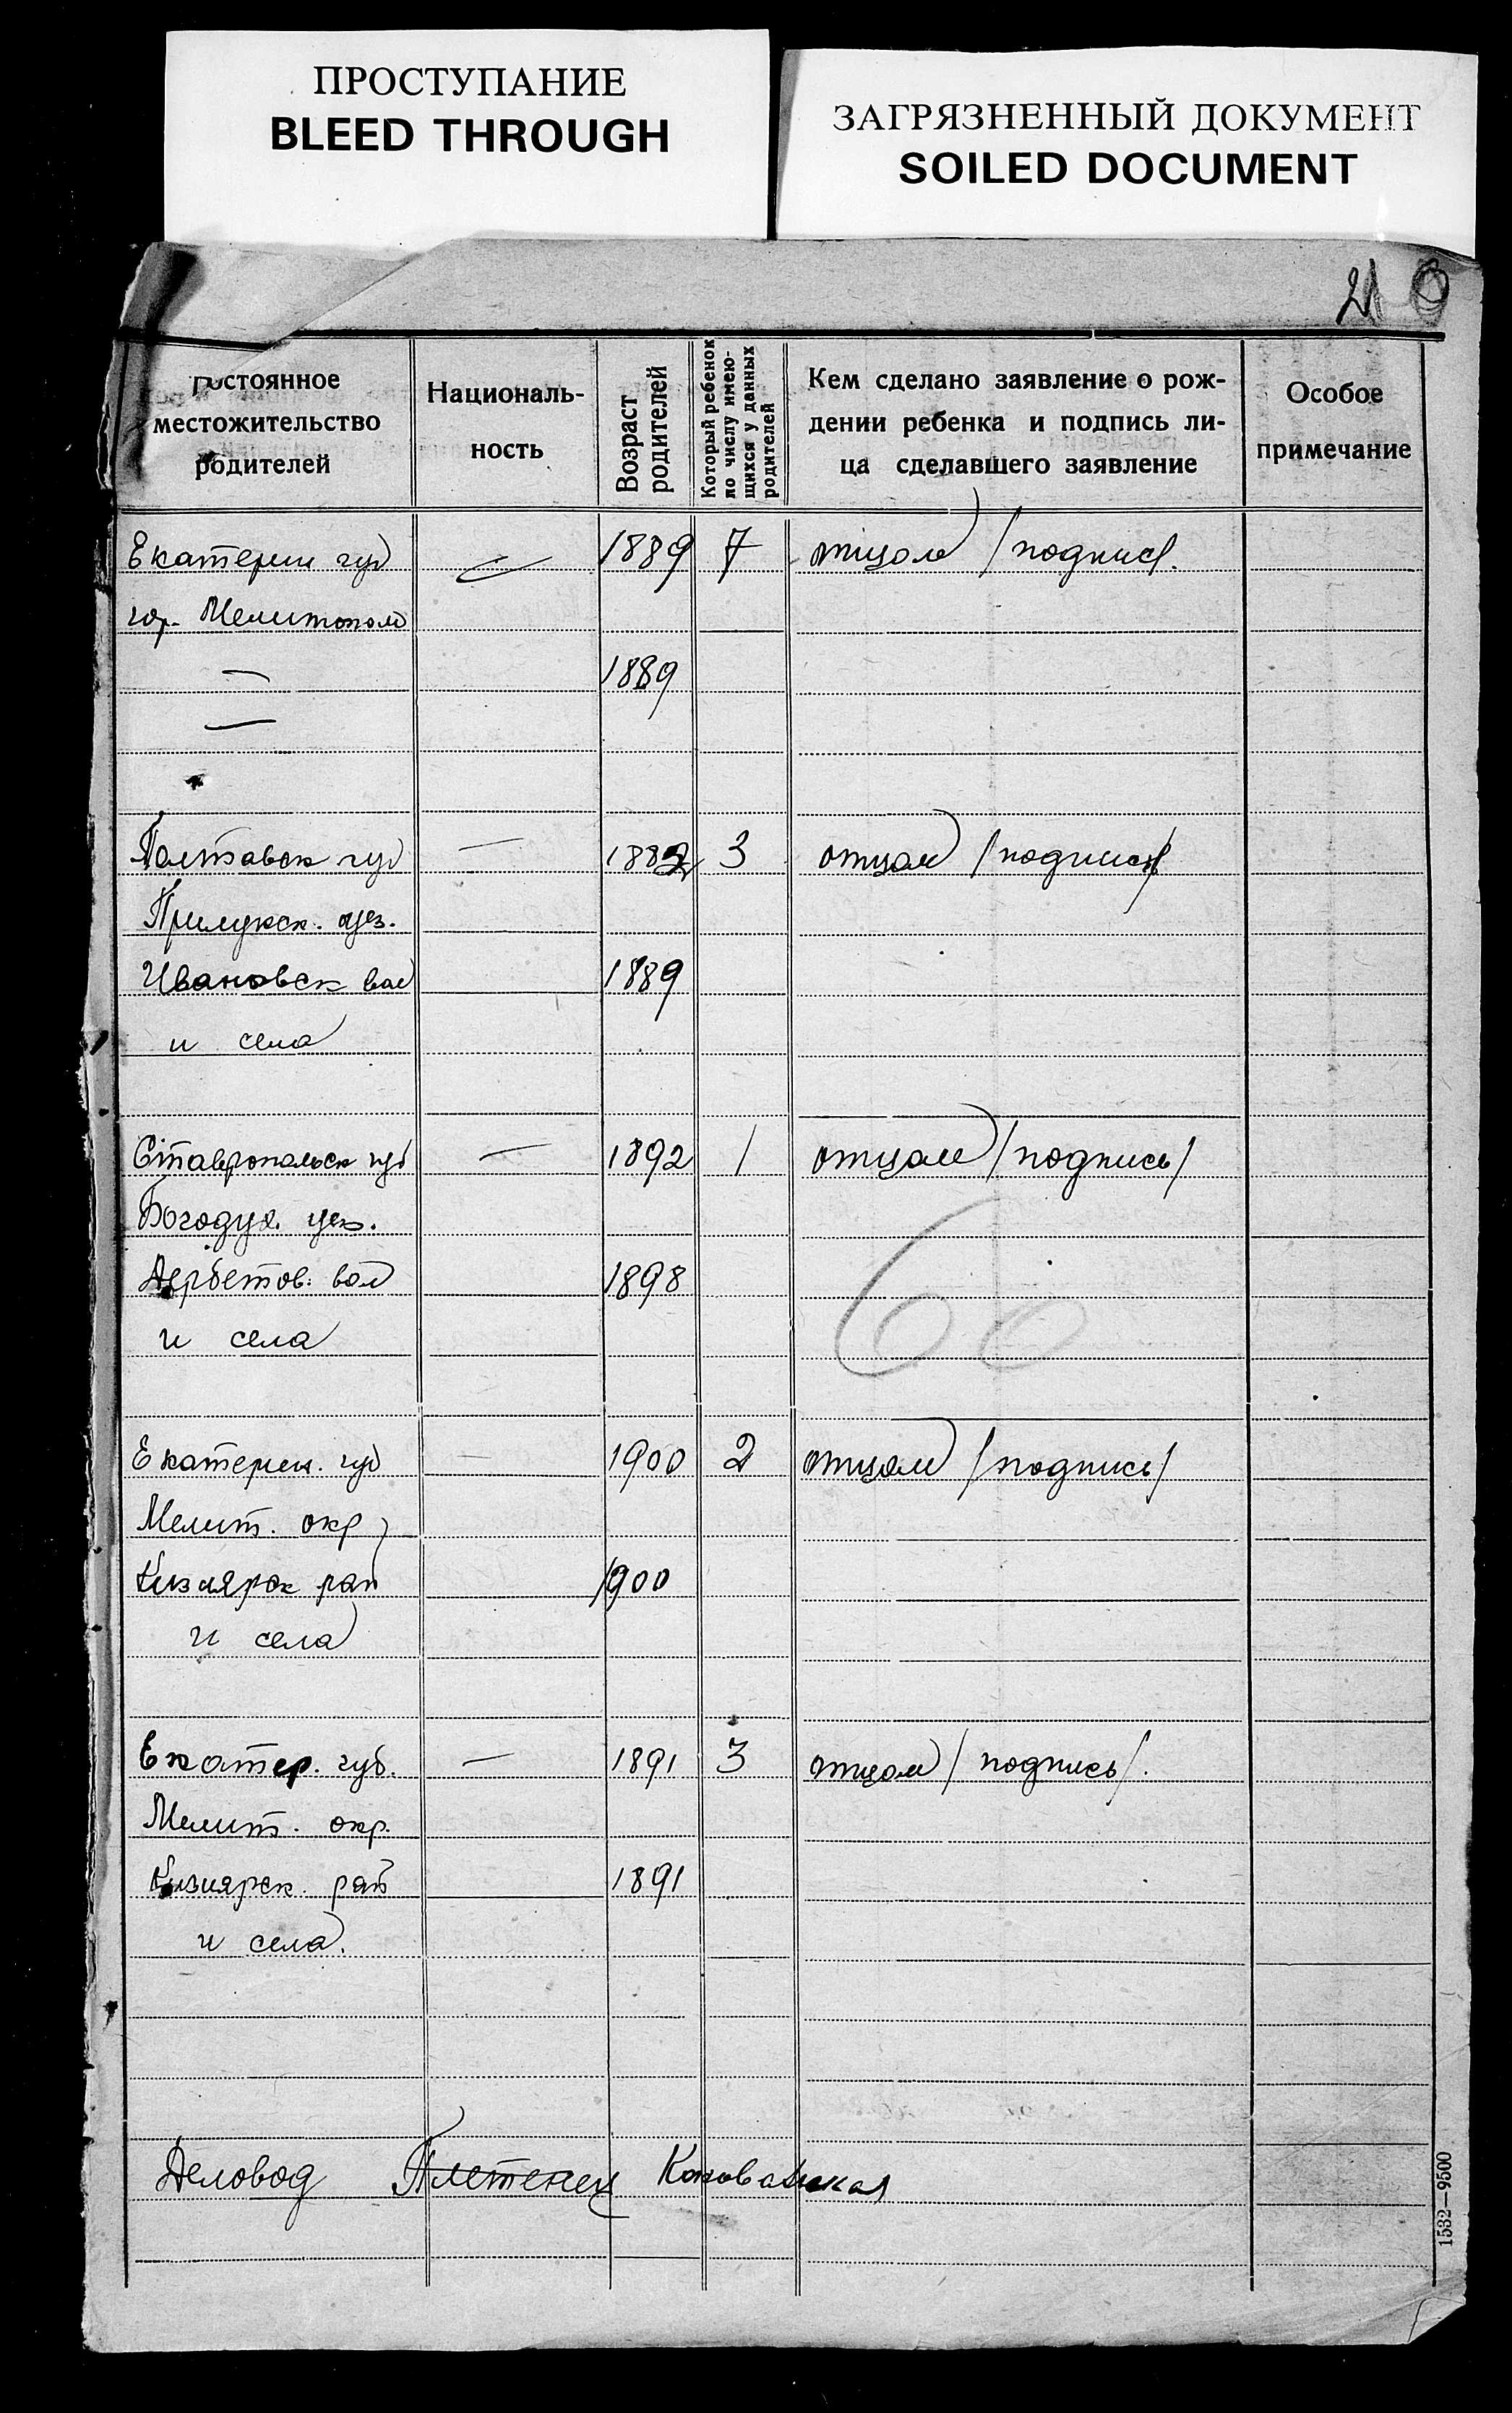 ПРОСТУПАНИЕ
BLEED THROUGH
ЗАГРЯЗНЕННЫЙ ДОКУМЕНТ
SOILED DOCUMENT
21
Постоянное
местожительство
родителей
Националь-
ность
Возраст
родителей
Который ребенок
по числу имею-
щихся у данных
родителей
Кем сделано заявление о рож-
дении ребенка и подпись ли-
ца сделавшего заявление
Особое
примечание
Екатерин губ — 1889 7 отцом /подпись/.
гор. Мелитополь
— 1889
—
Полтавск губ — 1882 3 отцом /подпись/
Прилукск. уез.
Ивановск вол 1889
и села
Ставропольск губ — 1892 1 отцом /подпись/
Богодух. уез.
Дербетов. вол 1898
и села
60
Екатерин. губ — 1900 2 отцом /подпись/
Мелит. окр
Кизиярск рай 1900
и села
Екатер. губ. — 1891 3 отцом /подпись/.
Мелит. окр.
Кизиярск. рай 1891
и села.
Деловод Плетенец
1532—9500